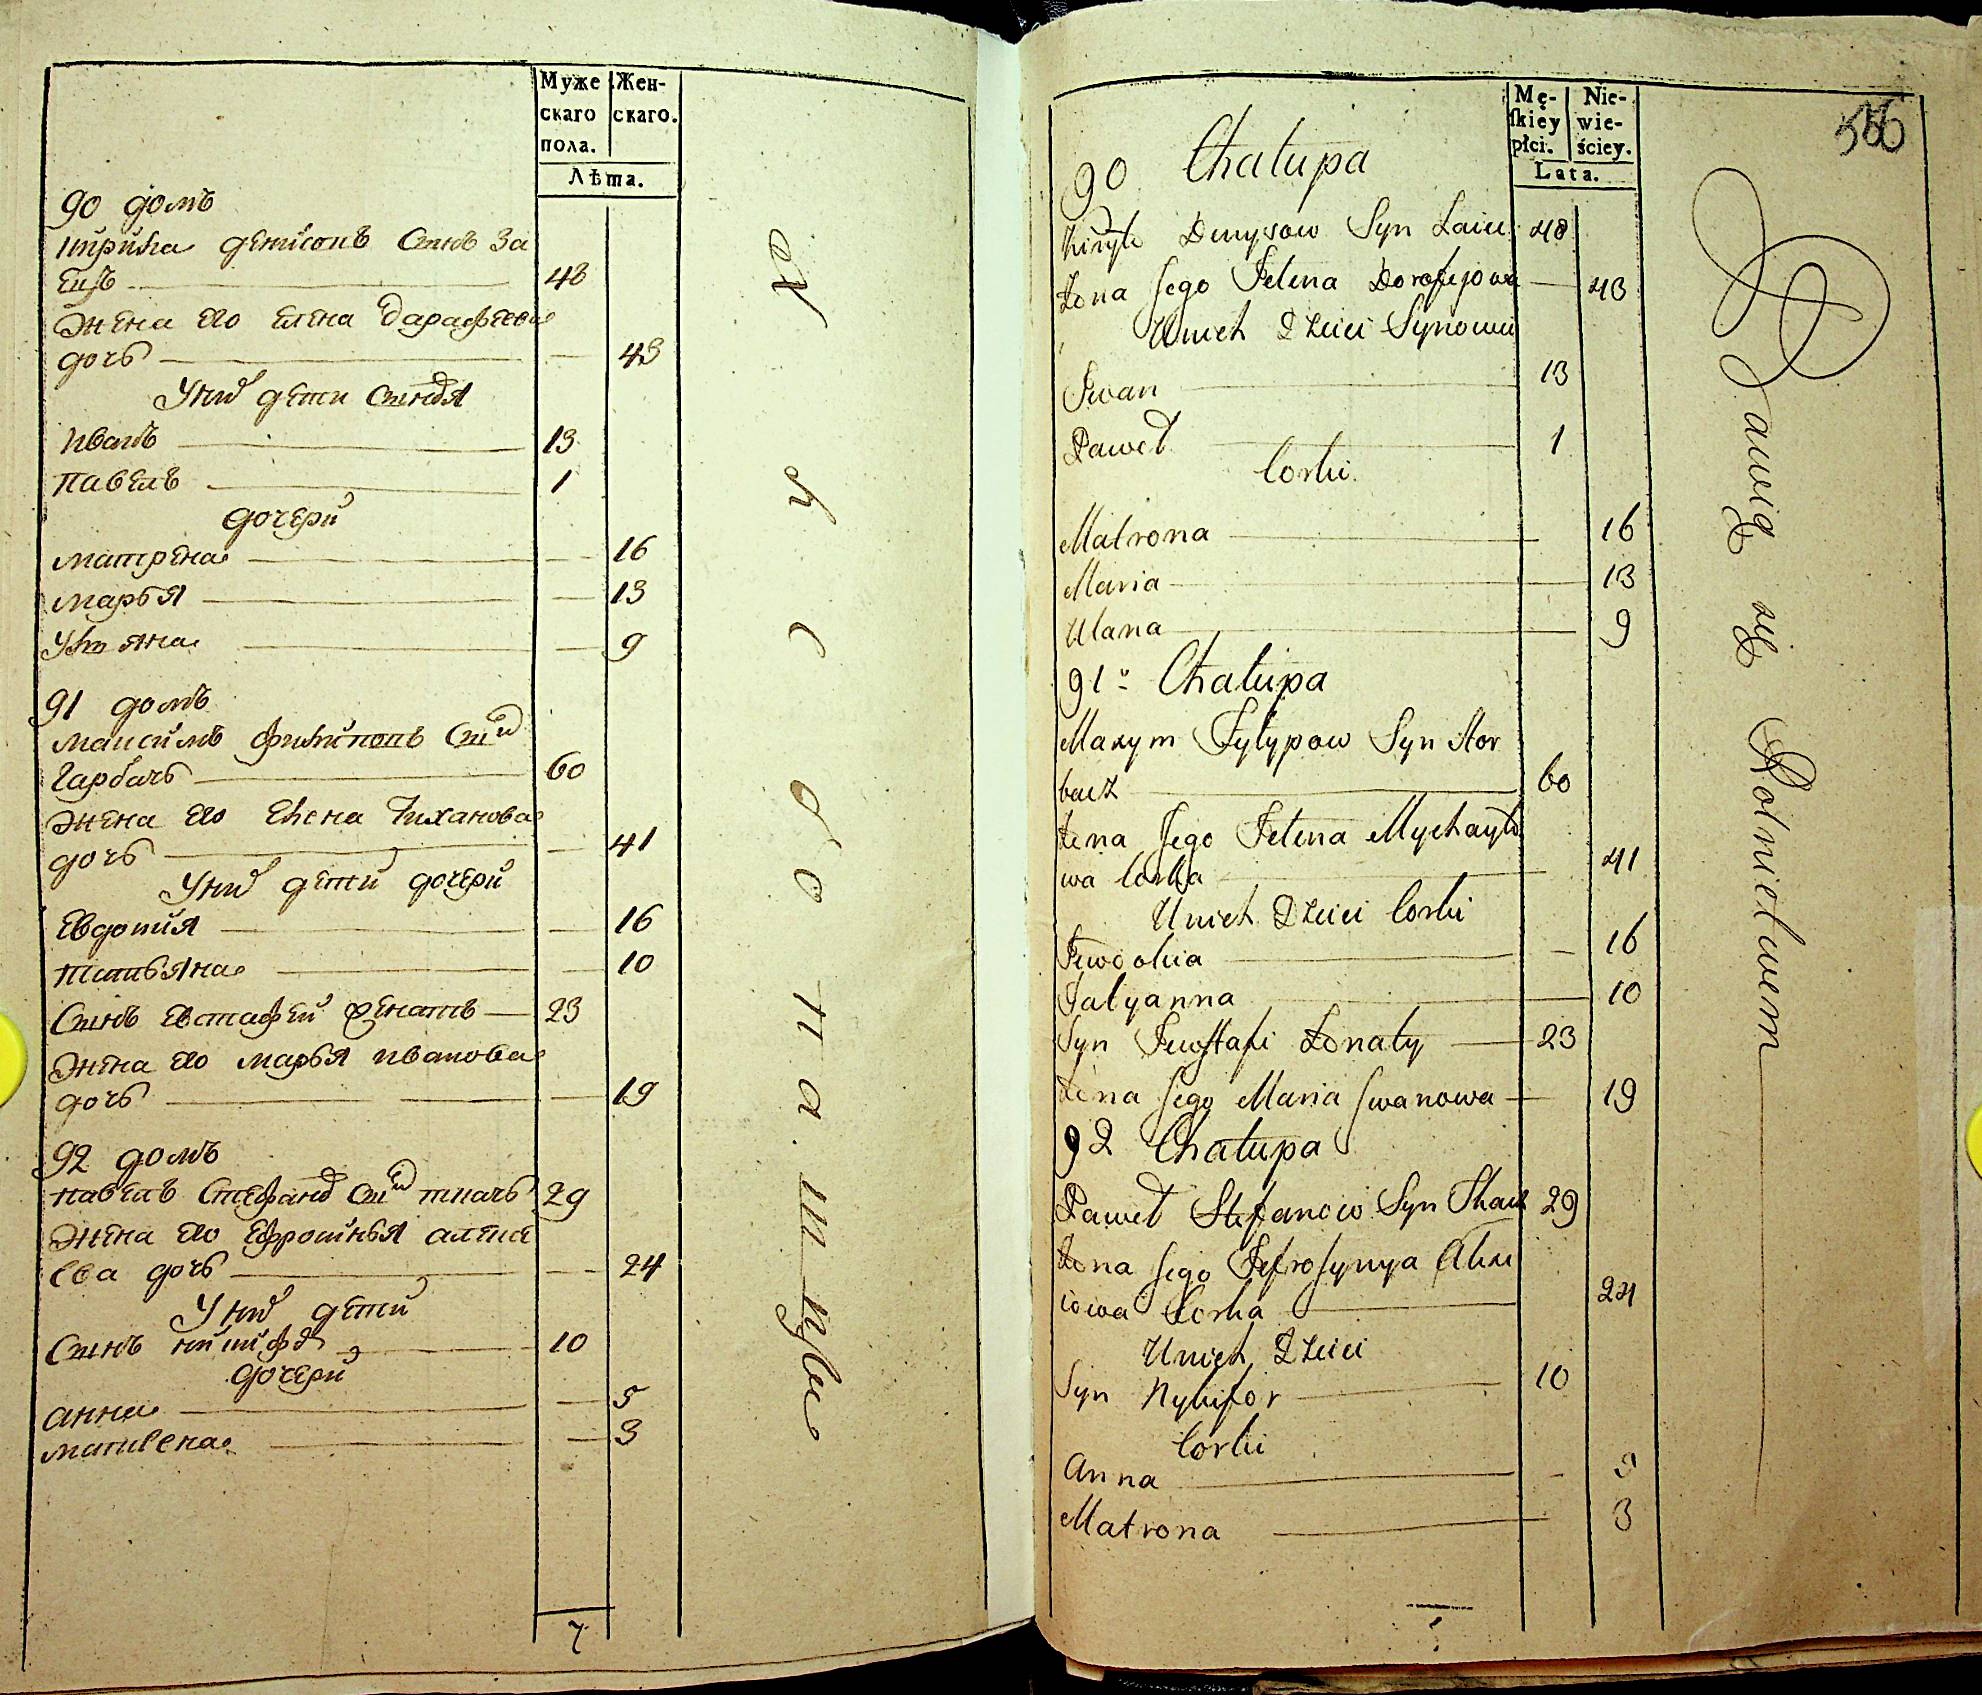 Муже
скаго
пола.
Жен-
скаго.
Лѣта.
90 домъ
Кирила денисовъ Сынъ За
ецъ 48
Жена его елена дарафеева
дочъ 43
У нихъ дети Сыновья
Иванъ 13
Павелъ 1
дочери
матрена 16
марья 13
Ульяна 9
91 домъ
максимъ филиповъ Сынъ
Гарбачъ 60
Жена его елена Тиханова
дочъ 41
У нихъ дети дочери
Евдокия 16
татьяна 10
Сынъ евстафей женатъ 23
Жена его марья иванова
дочъ 19
92 домъ
павелъ Стефановъ Сынъ ткачъ 29
Жена его Ефросинья алексе
ева дочъ 24
У нихъ дети
Сынъ никифоръ 10
дочери
анна 5
матрена 3
7
Mę-
skiéy
płci.
Nie-
wie-
ściey.
Lata.
90 Chałupa
Kiryło Denysow Syn Zaiec 48
Żona Jego Jelena Dorofejowa 43
U nich Dzieci Synowie
Iwan 13
Paweł 1
Corki
Matrona 16
Maria 13
Ulana 9
91 Chałupa
Maxym Fylypow Syn Hor
bacz 60
Żena Jego Jelena Mychayło
wa Corka 41
U nich Dzieci Corki
Jewdokia 16
Tatyanna 10
Syn Jewstafi Żonaty 23
Żena Jego Maria Iwanowa 19
92 Chałupa
Paweł Stefanow Syn Tkacz 29
Żona Jego Jefrosynya Alexi
iowa Corka 24
U nich Dzieci
Syn Nykifor 10
Corki
Anna 5
Matrona 3
Bawią się Rolnictwem